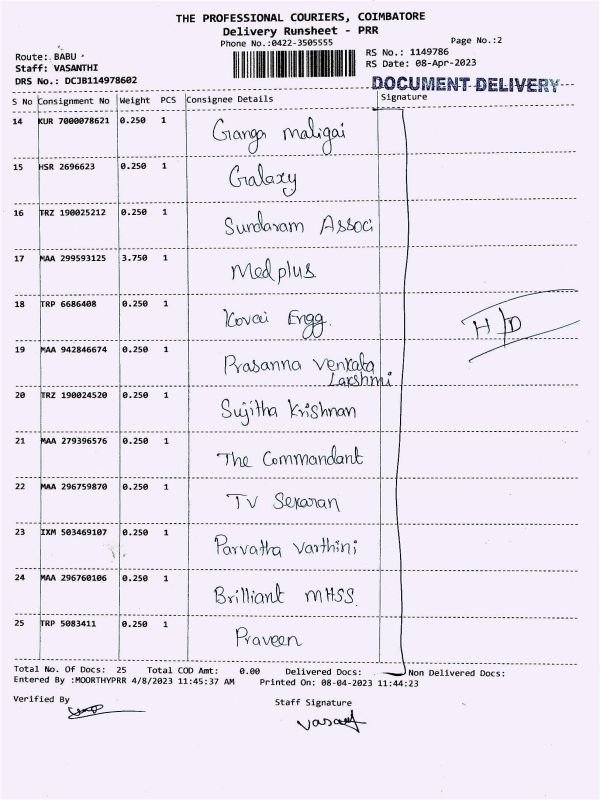 THE PROFESSIONAL COURIERS, COIMBATORE
Delivery Runsheet - PRR
Phone No.:0422-3505555
Page No.:2
Route: BABU
RS No.: 1149786
Staff: VASANTHI
RS Date: 08-Apr-2023
DRS No.: DCJB114978602
DOCUMENT DELIVERY
S No Consignment No Weight PCS Consignee Details Signature
14 KUR 7000078621 0.250 1 Ganga maligai
15 HSR 2696623 0.250 1 Galaxy
16 TRZ 190025212 0.250 1 Sundaram Associ
17 MAA 299593125 3.750 1 Medplus
18 TRP 6686408 0.250 1 Kovai Engg.
H/D
19 MAA 942846674 0.250 1 Prasanna Venkata
Lakshmi
20 TRZ 190024520 0.250 1 Sujitha Krishnan
21 MAA 279396576 0.250 1 The Commandant
22 MAA 296759870 0.250 1 TV Sekaran
23 IXM 503469107 0.250 1 Parvatha Varthini
24 MAA 296760106 0.250 1 Brilliant MHSS
25 TRP 5083411 0.250 1 Praveen
Total No. Of Docs: 25 Total COD Amt: 0.00 Delivered Docs: Non Delivered Docs:
Entered By :MOORTHYPRR 4/8/2023 11:45:37 AM Printed On: 08-04-2023 11:44:23
Verified By
Staff Signature